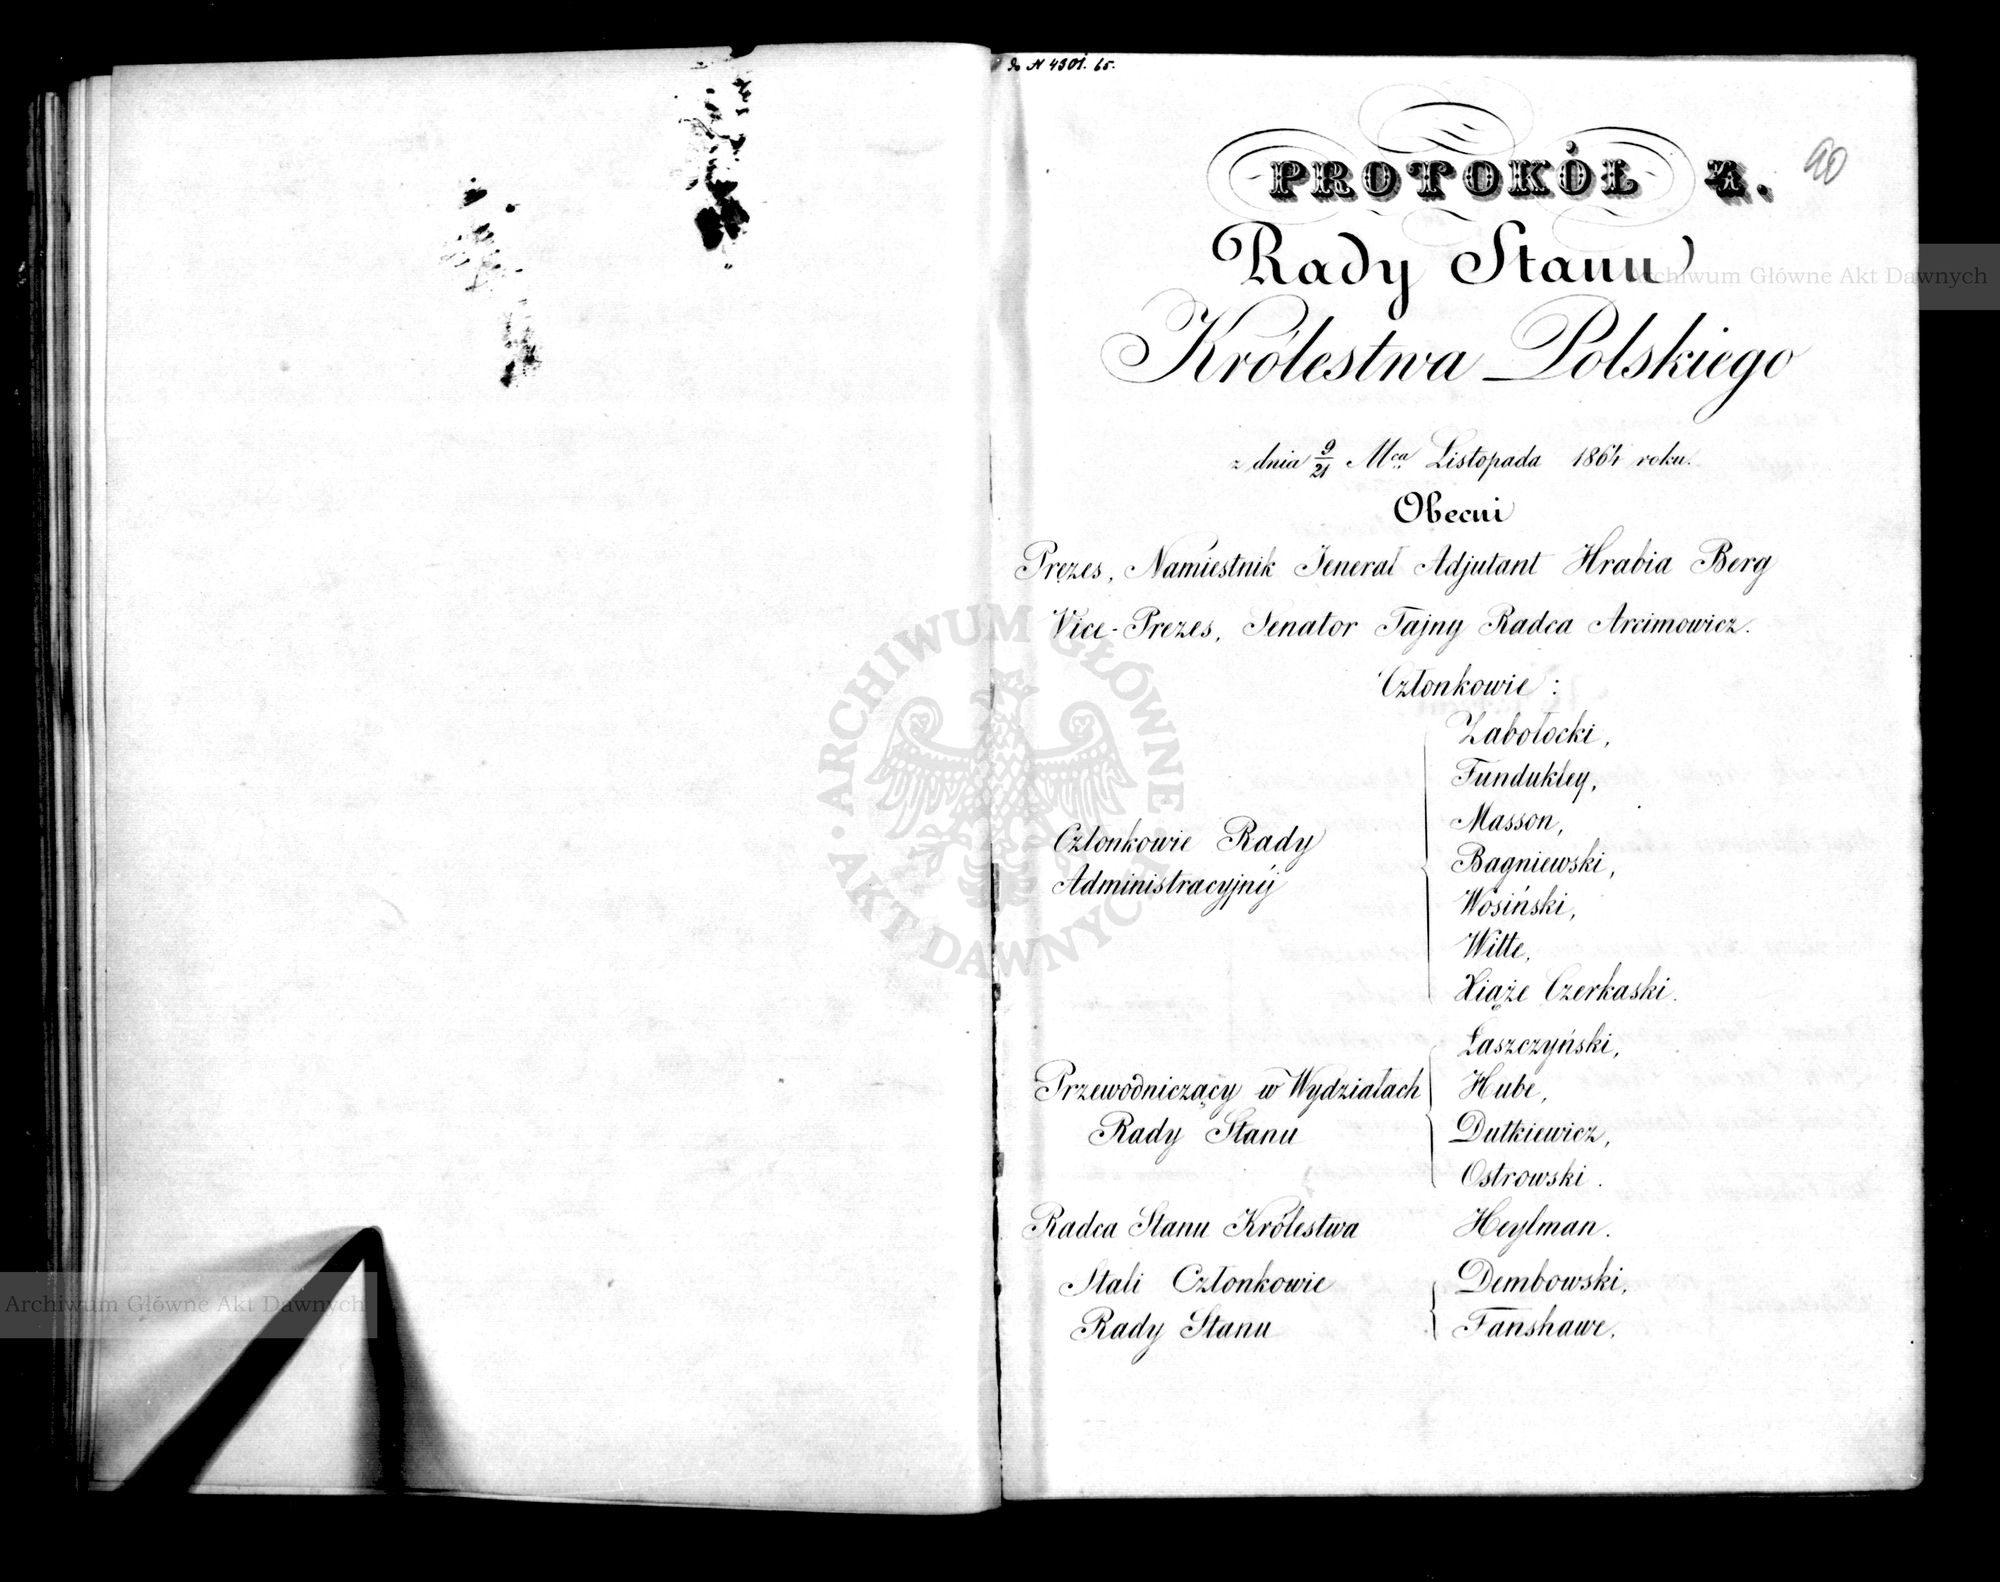 do N 4301. 65.
PROTOKÓŁ 4.
90
Rady Stanu
Królestwa Polskiego
z dnia 9/21 Mca Listopada 1864 roku.
Obecni
Prezes, Namiestnik Jenerał Adjutant Hrabia Berg
Vice-Prezes, Senator Tajny Radca Arcimowicz.
Członkowie:
Członkowie Rady
Administracyjnéj
Zabołocki,
Fundukley,
Masson,
Bagniewski,
Wosiński,
Witte,
Xiąże Czerkaski.
Przewodniczący w Wydziałach
Rady Stanu
Łaszczyński,
Hube,
Dutkiewicz,
Ostrowski.
Radca Stanu Królestwa Heylman.
Stali Członkowie
Rady Stanu
Dembowski,
Fanshawe,
ARCHIWUM GŁÓWNE AKT DAWNYCH
Archiwum Główne Akt Dawnych
Archiwum Główne Akt Dawnych